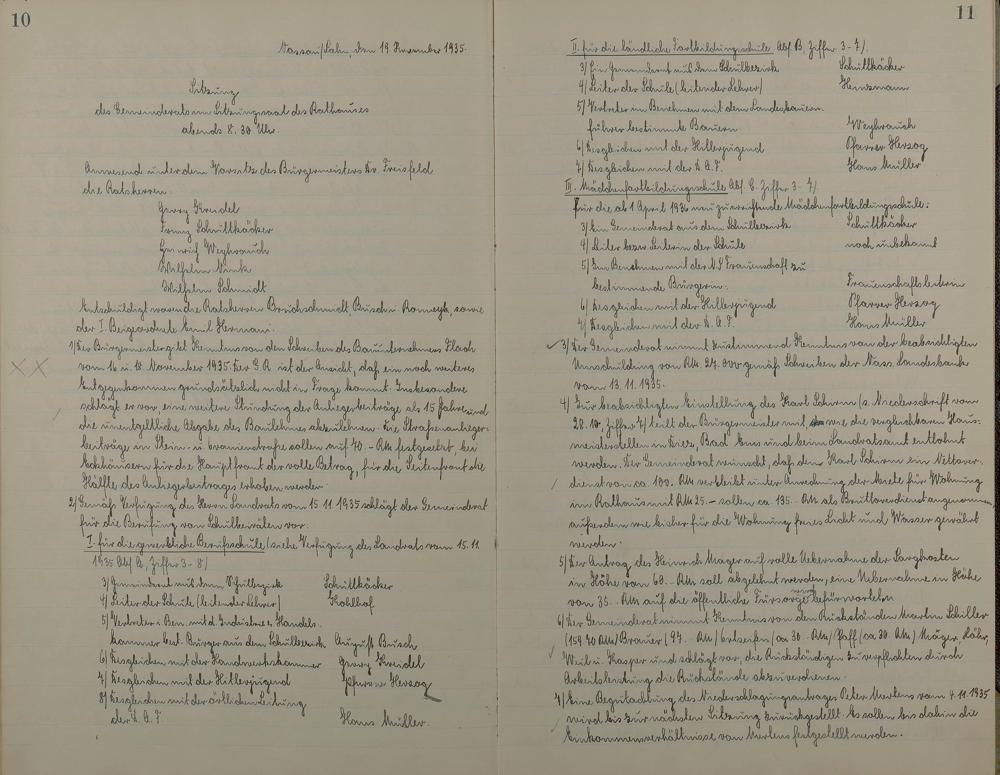 10
Nassau/Lahn, den 19 November 1935.
Sitzung
des Gemeinderats im Sitzungssaal des Rathauses
abends 8.30 Uhr.
Anwesend unter dem Vorsitz des Bürgermeisters Dr. Freisfeld
die Ratsherren
Georg Kreidel
Franz Schüttkäcker
Heinrich Weyhrauch
Wilhelm Nink
Wilhelm Schmidt
Entschuldigt waren die Ratsherren Bruchschmidt, Busch u. sowie
der I. Beigeordnete Emil Hermani.
1/ Der Bürgermeister gibt Kenntnis von den Schreiben des Bauunternehmers Flach
vom 16 u 18 November 1935. Der G.R. ist der Ansicht, daß ein noch weiteres
Entgegenkommen grundsätzlich nicht in Frage kommt. Insbesondere
schlägt er vor eine weitere Stundung der Anliegerbeiträge als 15 Jahre und
die unentgeltliche Abgabe des Baulehmes abzulehnen. Die Straßenanlieger-
beiträge in Stein- u Oranienstraße sollen auf 40.- RM festgesetzt, bei
Eckhäusern für die Hauptfront der volle Betrag, für die Seitenfront die
Hälfte des Anliegerbeitrages erhoben werden.
2/ Gemäß Verfügung des Herrn Landrats vom 15 11 1935 schlägt der Gemeinderat
für die Berufung von Schulbeiräten vor:
I. für die gewerbliche Berufsschule (siehe Verfügung des Landrats vom 15.11.
1935 Abs. A, Ziffer 3-8/
3/ Gemeinderat aus dem Schulbezirk Schüttkäcker
4/ Leiter der Schule (leitender Lehrer) Kohlhof
5/ Vertreter i. Ben. mit d. Industrie u. Handels-
kammer best. Bürger aus dem Schulbezirk August Busch
6/ Desgleichen mit der Handwerkskammer Georg Kreidel
7/ Desgleichen mit der Hitlerjugend Pfarrer Herzog
8/ Desgleichen mit der örtlichen Leitung
der D.A.F. Hans Müller.
11
II. für die ländliche Fortbildungsschule Abs. B, Ziffer 3-7/.
3/ Ein Gemeinderat aus dem Schulbezirk Schüttkäcker
4/ Leiter der Schule (leitender Lehrer)
5/ Vertreter im Benehmen mit dem Landesbauern-
führer bestimmte Bauern Weyhrauch
6/ Desgleichen mit der Hitlerjugend Pfarrer Herzog
7/ Desgleichen mit der D.A.F. Hans Müller
III. Mädchenfortbildungsschule Abs. C. Ziffer 3-7/.
für die ab 1 April 1936 neu zu errichtende Mädchenfortbildungsschule:
3/ Ein Gemeinderat aus dem Schulbezirk Schüttkäcker
4/ Leiter bezw Leiterin der Schule noch unbekannt
5/ Im Benehmen mit der N.S Frauenschaft zu
bestimmende Bürgerin. Frauenschaftsleiterin
6/ Desgleichen mit der Hitlerjugend Pfarrer Herzog
7/ Desgleichen mit der D.A.F. Hans Müller
3/ Der Gemeinderat nimmt zustimmend Kenntnis von der beabsichtigten
Umschuldung von RM. 27.000 gemäß Schreiben der Nass. Landesbank
vom 13.11.1935.
4/ Zur beabsichtigten Einstellung des Karl Schirm (s. Niederschrift vom
28.10, Ziffer 7) teilt der Bürgermeister mit wie die vergleichbaren Haus-
meisterstellen in Diez, Bad Ems und beim Landratsamt entlohnt
werden. Der Gemeinderat wünscht, daß dem Karl Schirm ein Nettover-
dienst von ca. 100. RM verbleibt unter Anrechnung der Miete für Wohnung
im Rathaus mit RM 25.- sollen ca. 135. RM als Bruttoverdienst angenommen
außerdem wie bisher für die Wohnung freies Licht und Wasser gewährt
werden.
5/ Der Antrag des Heinrich Mager auf volle Uebernahme der Sargkosten
in Höhe von 60.- RM soll abgelehnt werden, eine Uebernahme in Höhe
von 35.- RM auf die öffentliche Fürsorge befürworten
6/ Der Gemeinderat nimmt Kenntnis von den Rückständen Martin Schiller
(159.40 RM) Brauer (97.- RM) (ca 30.- RM) Pfaff (ca. 30. RM)
Weil u. Kasper und schlägt vor, die Rückständigen zu verpflichten durch
Arbeitsleistung die Rückstände abzuverdienen.
7/ Eine Begutachtung des Niederschlagungsantrages Peter Mertens vom 4.11.1935
wird bis zur nächsten Sitzung zurückgestellt. Es sollen bis dahin die
Einkommensverhältnisse von Mertens festgestellt werden.